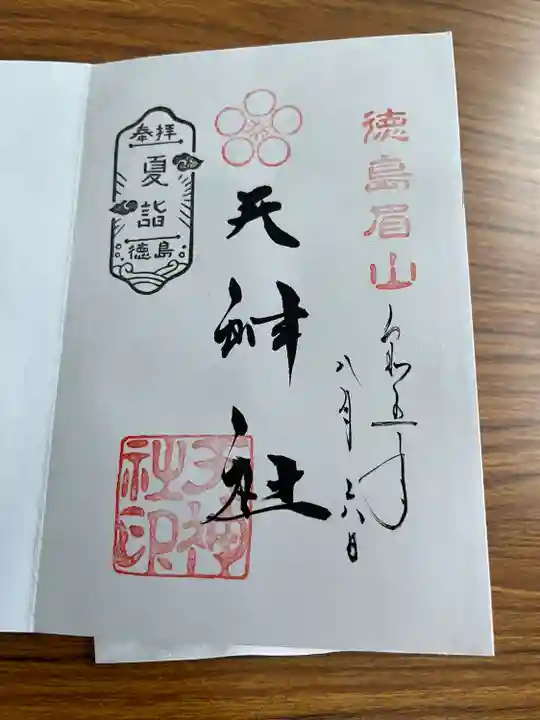 徳島眉山
令和五年
八月六日
天神社
天神社印
奉拝
夏詣
徳島